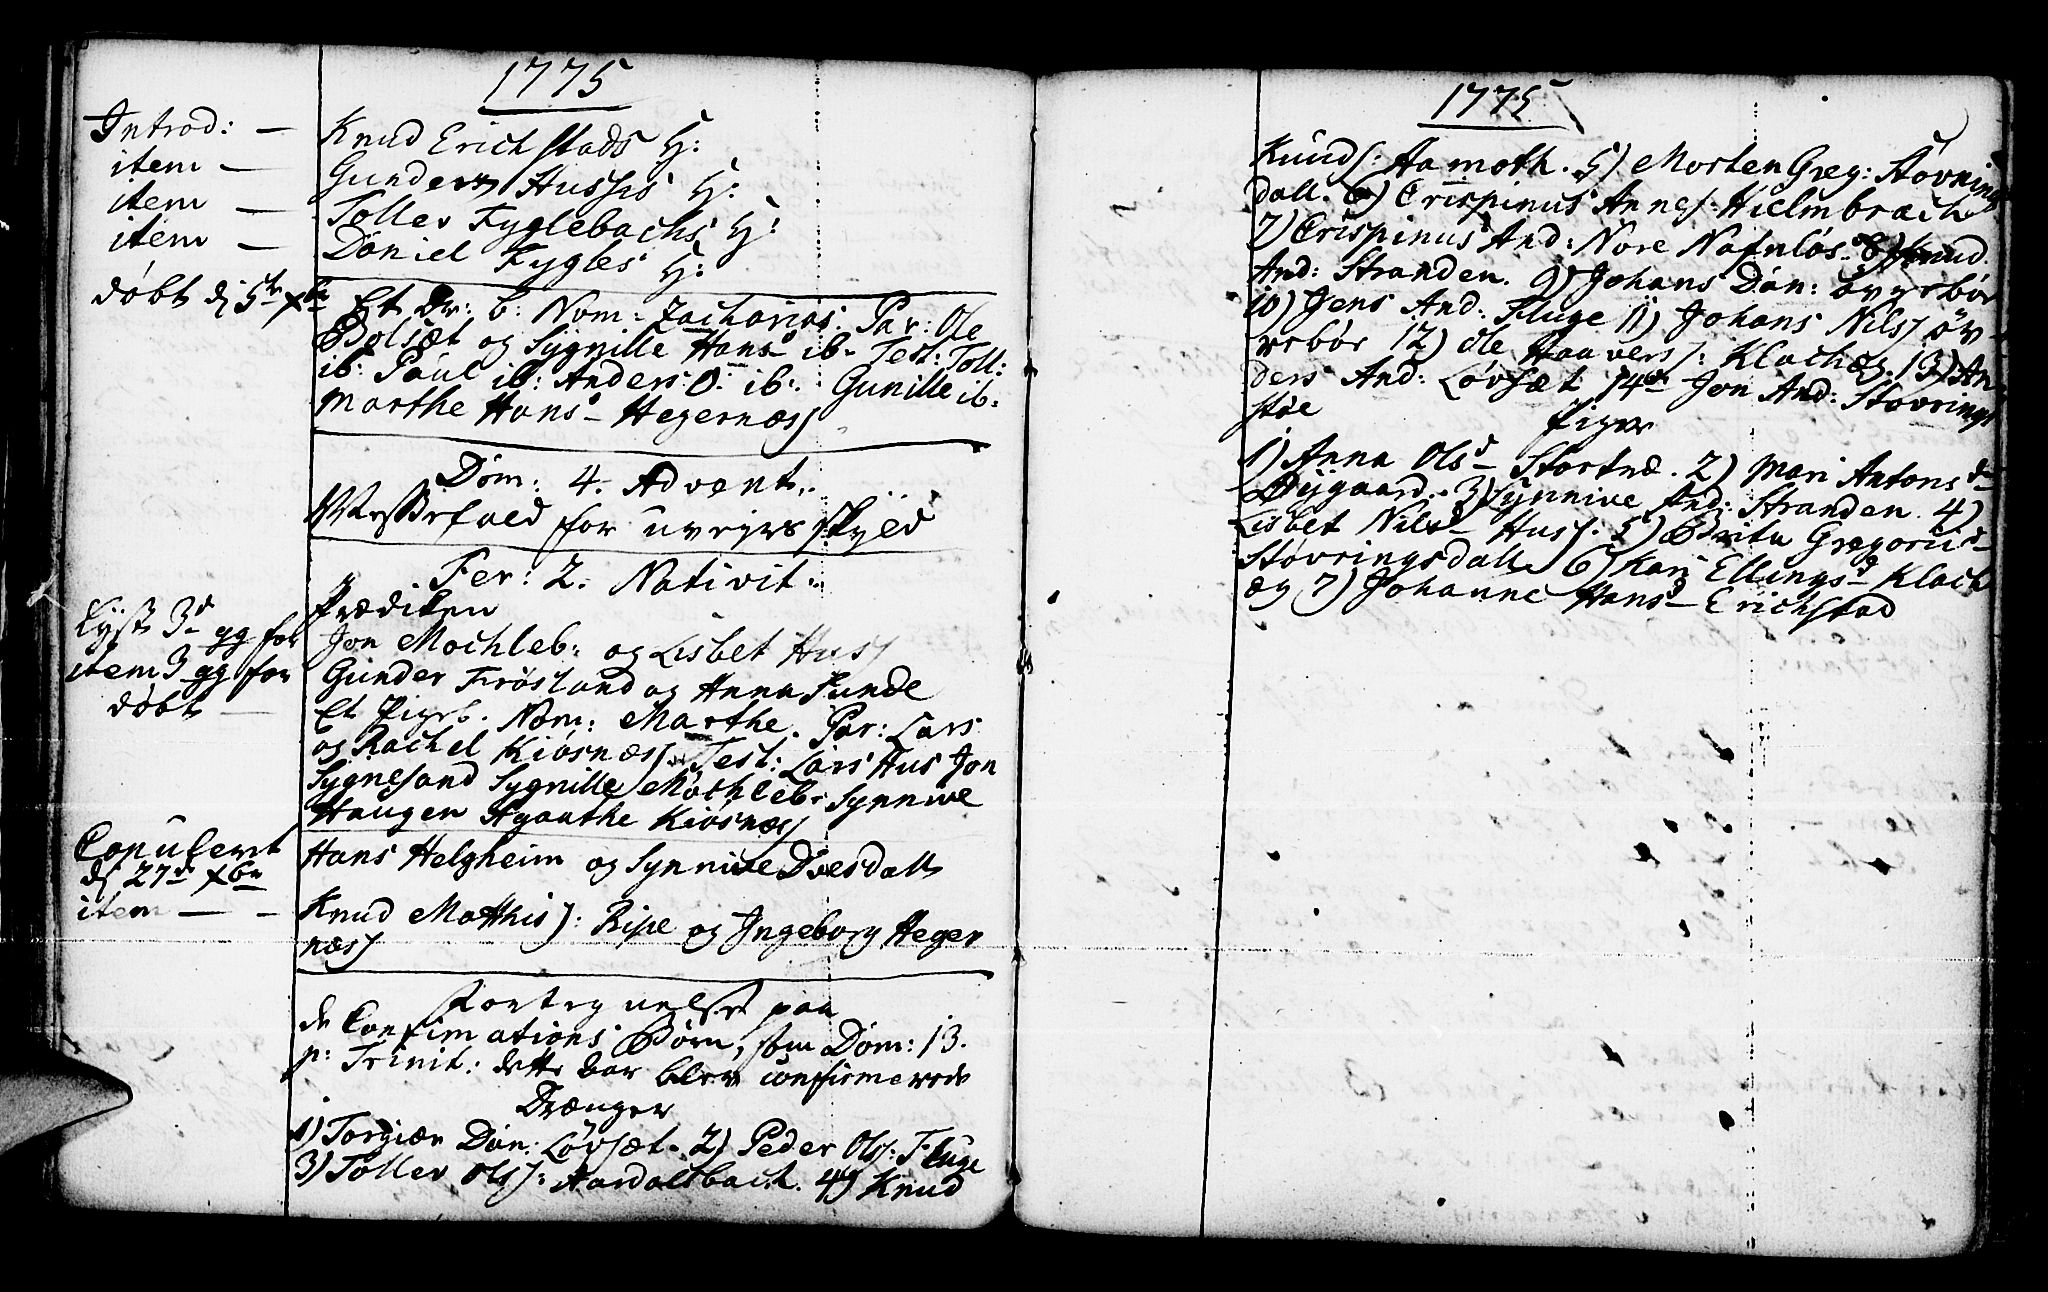 1775
Introd: — Knud Erichstads H:
item — Gunders Husses H:
item — Tolles Fyglebachs H:
item — Daniel Fygles H:
døbt d 5te xbr Et dr: b: Nom: Zacharias. Par: Ole
Bolsæt og Sygnille Hans ib. Test: Toll:
ib: Paul ib: Anders O. ib: Gunille ib:
Marthe Hansd Hegernæss
Dom: 4. Advent.
Messefald for uveyrs skyld
Fer: 2. Nativit.
Prædiken
Lyst 3d gg for Jon Mochleb: og Lisbet Huss
item 3 gg for Gunder Frøsland og Anna Sunde
døbt — Et Pigeb. Nom: Marthe. Par: Lars
og Rachel Kiøsnæss. Test: Lars Hus Jon
Sygnesand Sygnille Mochleb: Synnive
Haugen Agaathe Kiøsnæss
Copuleret Hans Helgheim og Synnive Dvesdall
d 27d xbr
item — — Knud Matthiss: Ripe og Ingeborg Heger
næss
Fortegnelse paa
de Confirmations Børn, som Dom: 13.
p: Trinit: dette Aar blev confirmerede
Drænger
1) Torgiær Dan: Løvsæt. 2) Peder Ols: Fluge
3) Tolles Olss: Aardalsbach. 4) Knud
1775
Knuds: Aamoth. 5) Morten Greg: Støvrings
dall. 6) Crispinus Annes: Hielmbrech
7) Crispinus And: Nore Nafnløs. 8) Knud
And: Stranden. 9) Johans Dan: øvrebøe
10) Jens And: Fluge 11) Johans Nilss øv
rebøe 12) Ole Haavers: Klacheg. 13) An
ders And: Løvsæt 14de Jon And: Støvrings
støe
Piger
1) Anna Olsd Stortræ. 2) Mari Antonsd
Nygaard. 3) Synnive And: Stranden. 4)
Lisbet Nilsd Huss. 5) Britu Gregoriid
Støvringsdall. 6) Kari Ellingsd Klach
æg 7) Johanne Hansd Erichstad